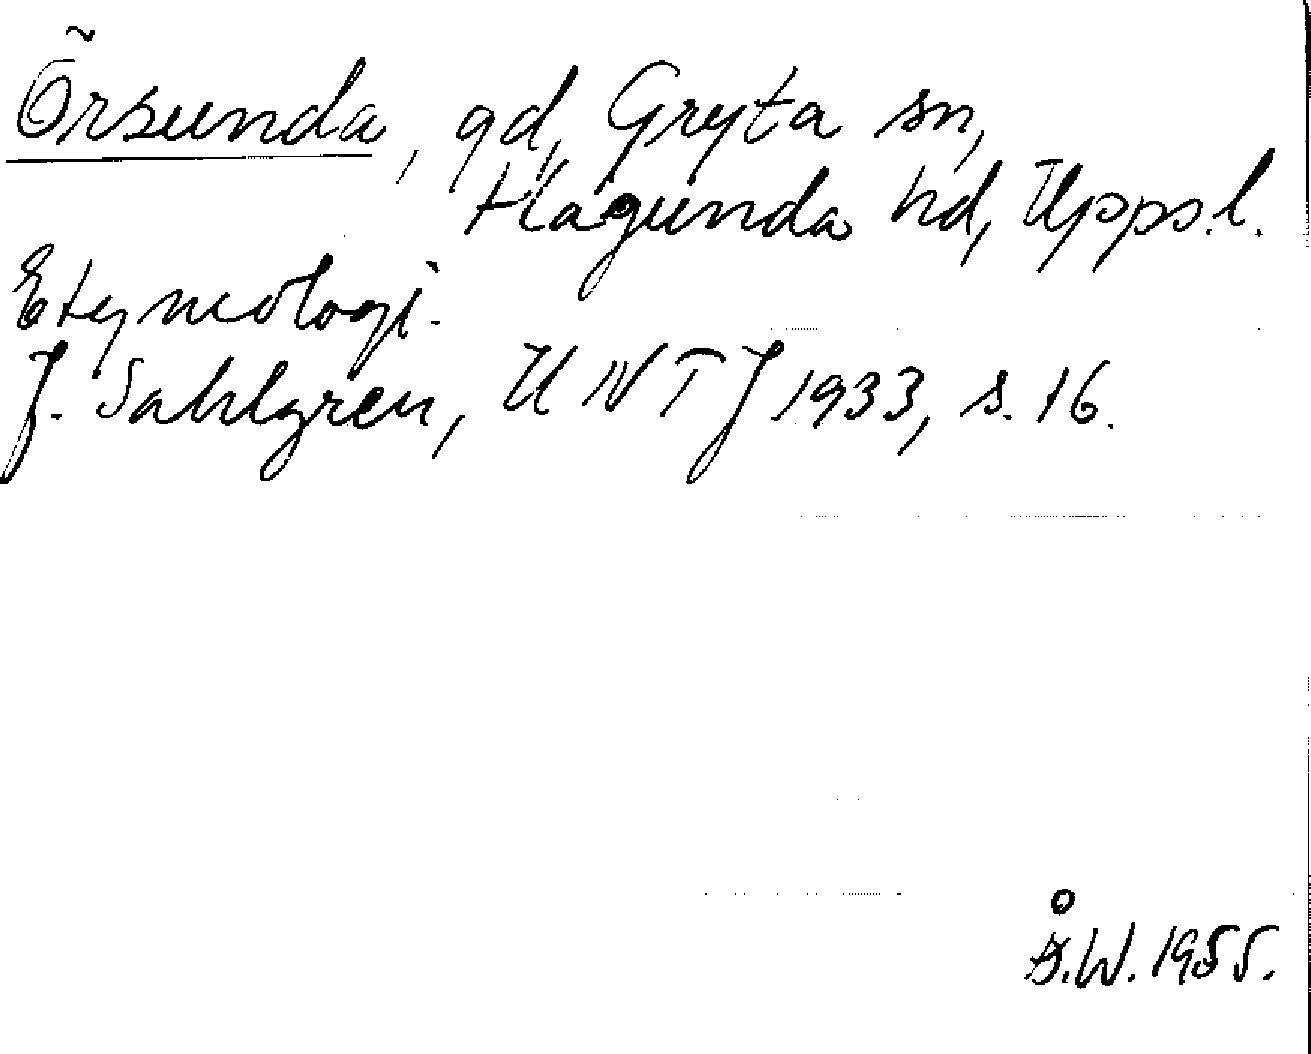 Örsunda, gd, Gryta sn,
Hagunda hd, Upps.l.
Etymologi.
J. Sahlgren, UNTJ 1933, s. 16.
Å.W. 1955.